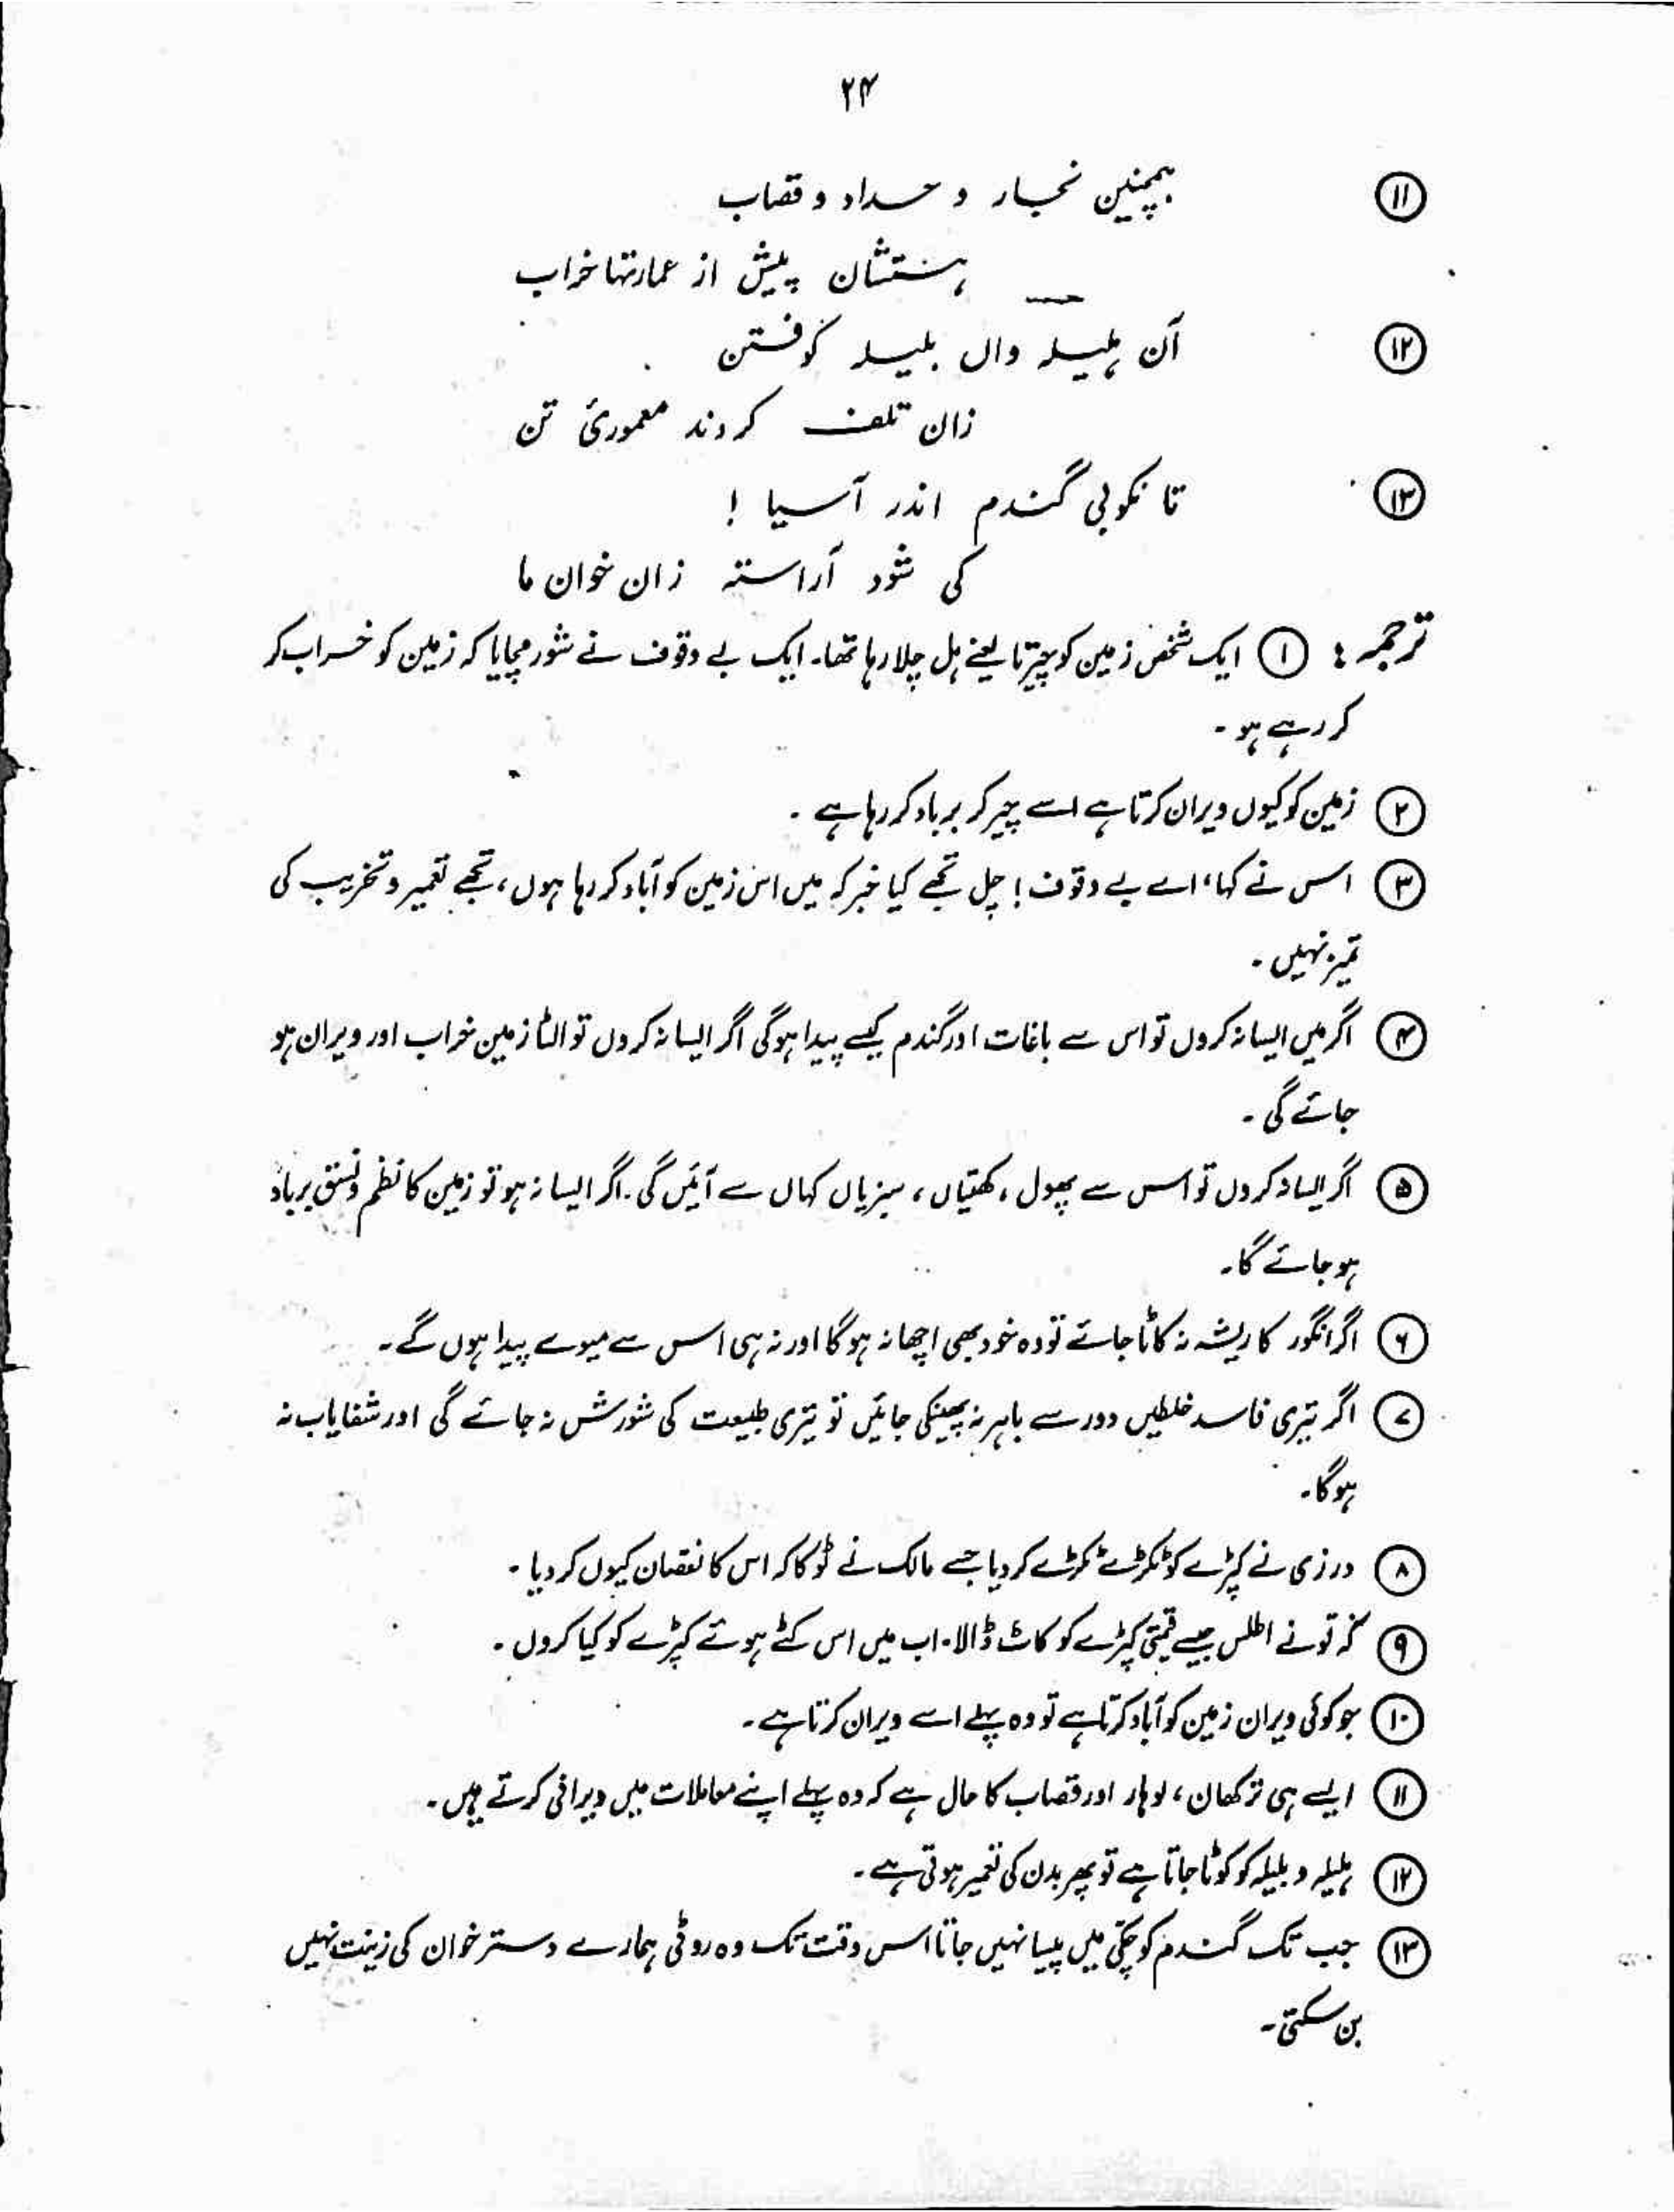 ۲۴
⑪ ہمچنین نجار و حداد و قصاب
ہستشان پیش از عمارتہا خراب
⑫ آن ہلیلہ واں بلیلہ کوفتن
زان تلف کردند معموریٔ تن
⑬ تا نکوبی گندم اندر آسیا !
کی شود آراستہ زان خوان ما
ترجمہ : ① ایک شخص زمین کو چیرتا یعنے ہل چلا رہا تھا۔ ایک بے وقوف نے شور مچایا کہ زمین کو خراب کر
کر رہے ہو ۔
② زمین کو کیوں ویران کرتا ہے اسے چیر کر برباد کر رہا ہے ۔
③ اس نے کہا، اے بے وقوف ! چل تجھے کیا خبر کہ میں اس زمین کو آباد کر رہا ہوں، تجھے تعمیر و تخریب کی
تمیز نہیں ۔
④ اگر میں ایسا نہ کروں تو اس سے باغات اور گندم کیسے پیدا ہوگی اگر ایسا نہ کروں تو الٹا زمین خراب اور ویران ہو
جائے گی ۔
⑤ اگر ایسا نہ کروں تو اس سے پھول ، کھتیاں ، سبزیاں کہاں سے آئیں گی ۔ اگر ایسا نہ ہو تو زمین کا نظم ونسق برباد
ہو جائے گا۔
⑥ اگر انگور کا ریشہ نہ کاٹا جائے تو وہ خود بھی اچھا نہ ہوگا اور نہ ہی اس سے میوے پیدا ہوں گے ۔
⑦ اگر تیری فاسد خلطیں دور سے باہر نہ پھینکی جائیں تو تیری طبیعت کی شورش نہ جائے گی اور شفایاب نہ
ہوگا ۔
⑧ درزی نے کپڑے کو ٹکڑے ٹکڑے کر دیا جسے مالک نے ٹوکا کہ اس کا نقصان کیوں کر دیا ۔
⑨ کہ تو نے اطلس جیسے قیمتی کپڑے کو کاٹ ڈالا ۔ اب میں اس کٹے ہوئے کپڑے کو کیا کروں ۔
⑩ جو کوئی ویران زمین کو آباد کرتا ہے تو وہ پہلے اسے ویران کرتا ہے ۔
⑪ ایسے ہی ترکھان ، لوہار اور قصاب کا حال ہے کہ وہ پہلے اپنے معاملات میں ویرانی کرتے ہیں ۔
⑫ ہلیلہ و بلیلہ کو کوٹا جاتا ہے تو پھر بدن کی تعمیر ہوتی ہے ۔
⑬ جب تک گندم کو چکی میں پیسا نہیں جاتا اس وقت تک وہ روٹی ہمارے دسترخوان کی زینت نہیں
بن سکتی ۔